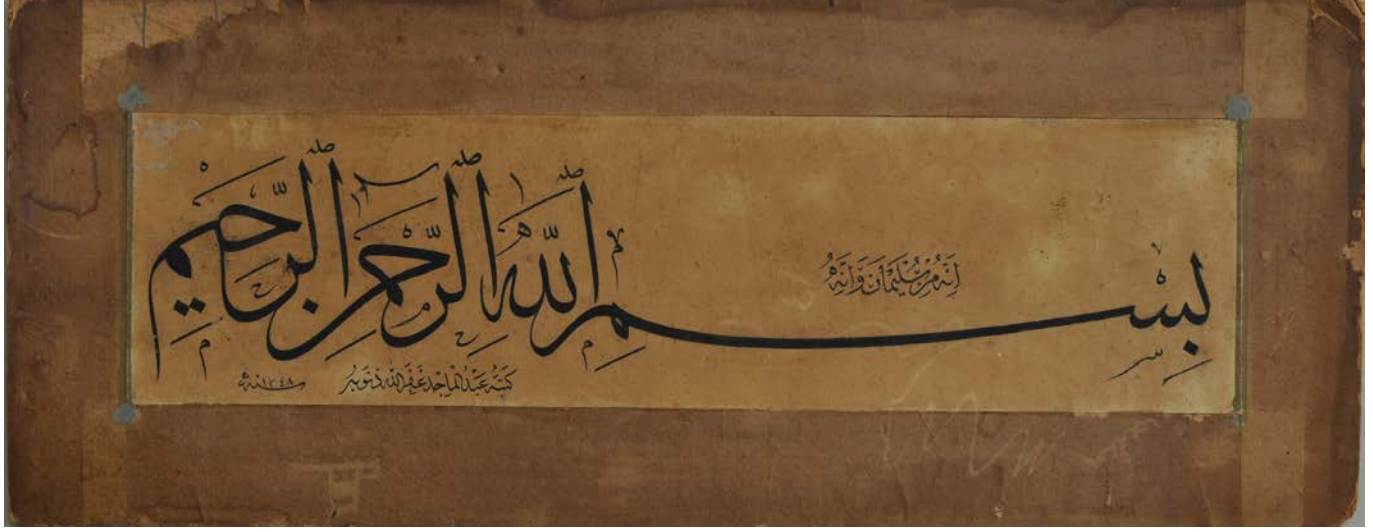 اِنَّهُ مِنْ سُلَيْمَانَ وَاِنَّهُ
بِسْمِ اللّٰهِ الرَّحْمٰنِ الرَّحِيمِ
كتبه عبد الماجد غفر الله ذنوبه
سنة ١٢٤٨